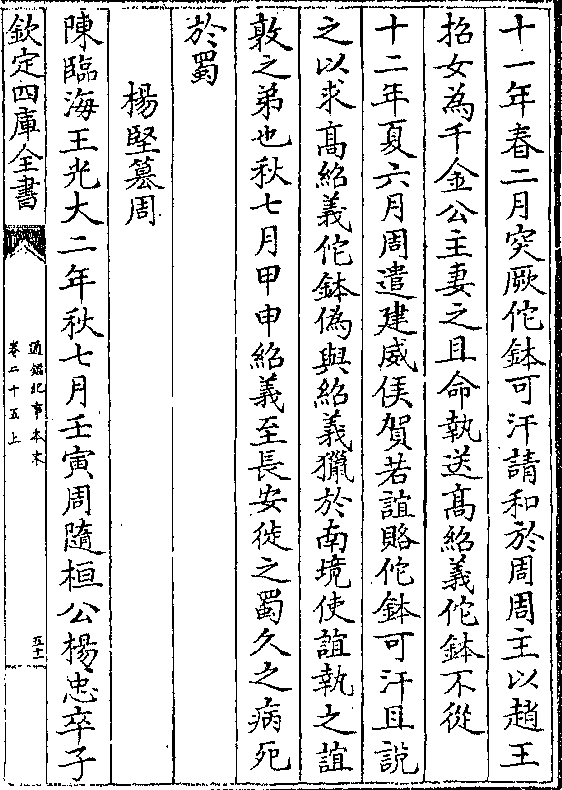 十一年春二月突厥佗鉢可汗請和於周周主以趙王
招女為千金公主妻之且命執送髙紹義佗鉢不從
十二年夏六月周遣建威侯賀若誼賂佗鉢可汗且說
之以求髙紹義佗鉢偽與紹義獵於南境使誼執之誼
敦之弟也秋七月甲申紹義至長安徙之蜀久之病死
於蜀
楊堅簒周
陳臨海王光大二年秋七月壬寅周隨桓公楊忠卒子
欽定四庫全書
通鑑紀事本末
卷二十五上
五十一